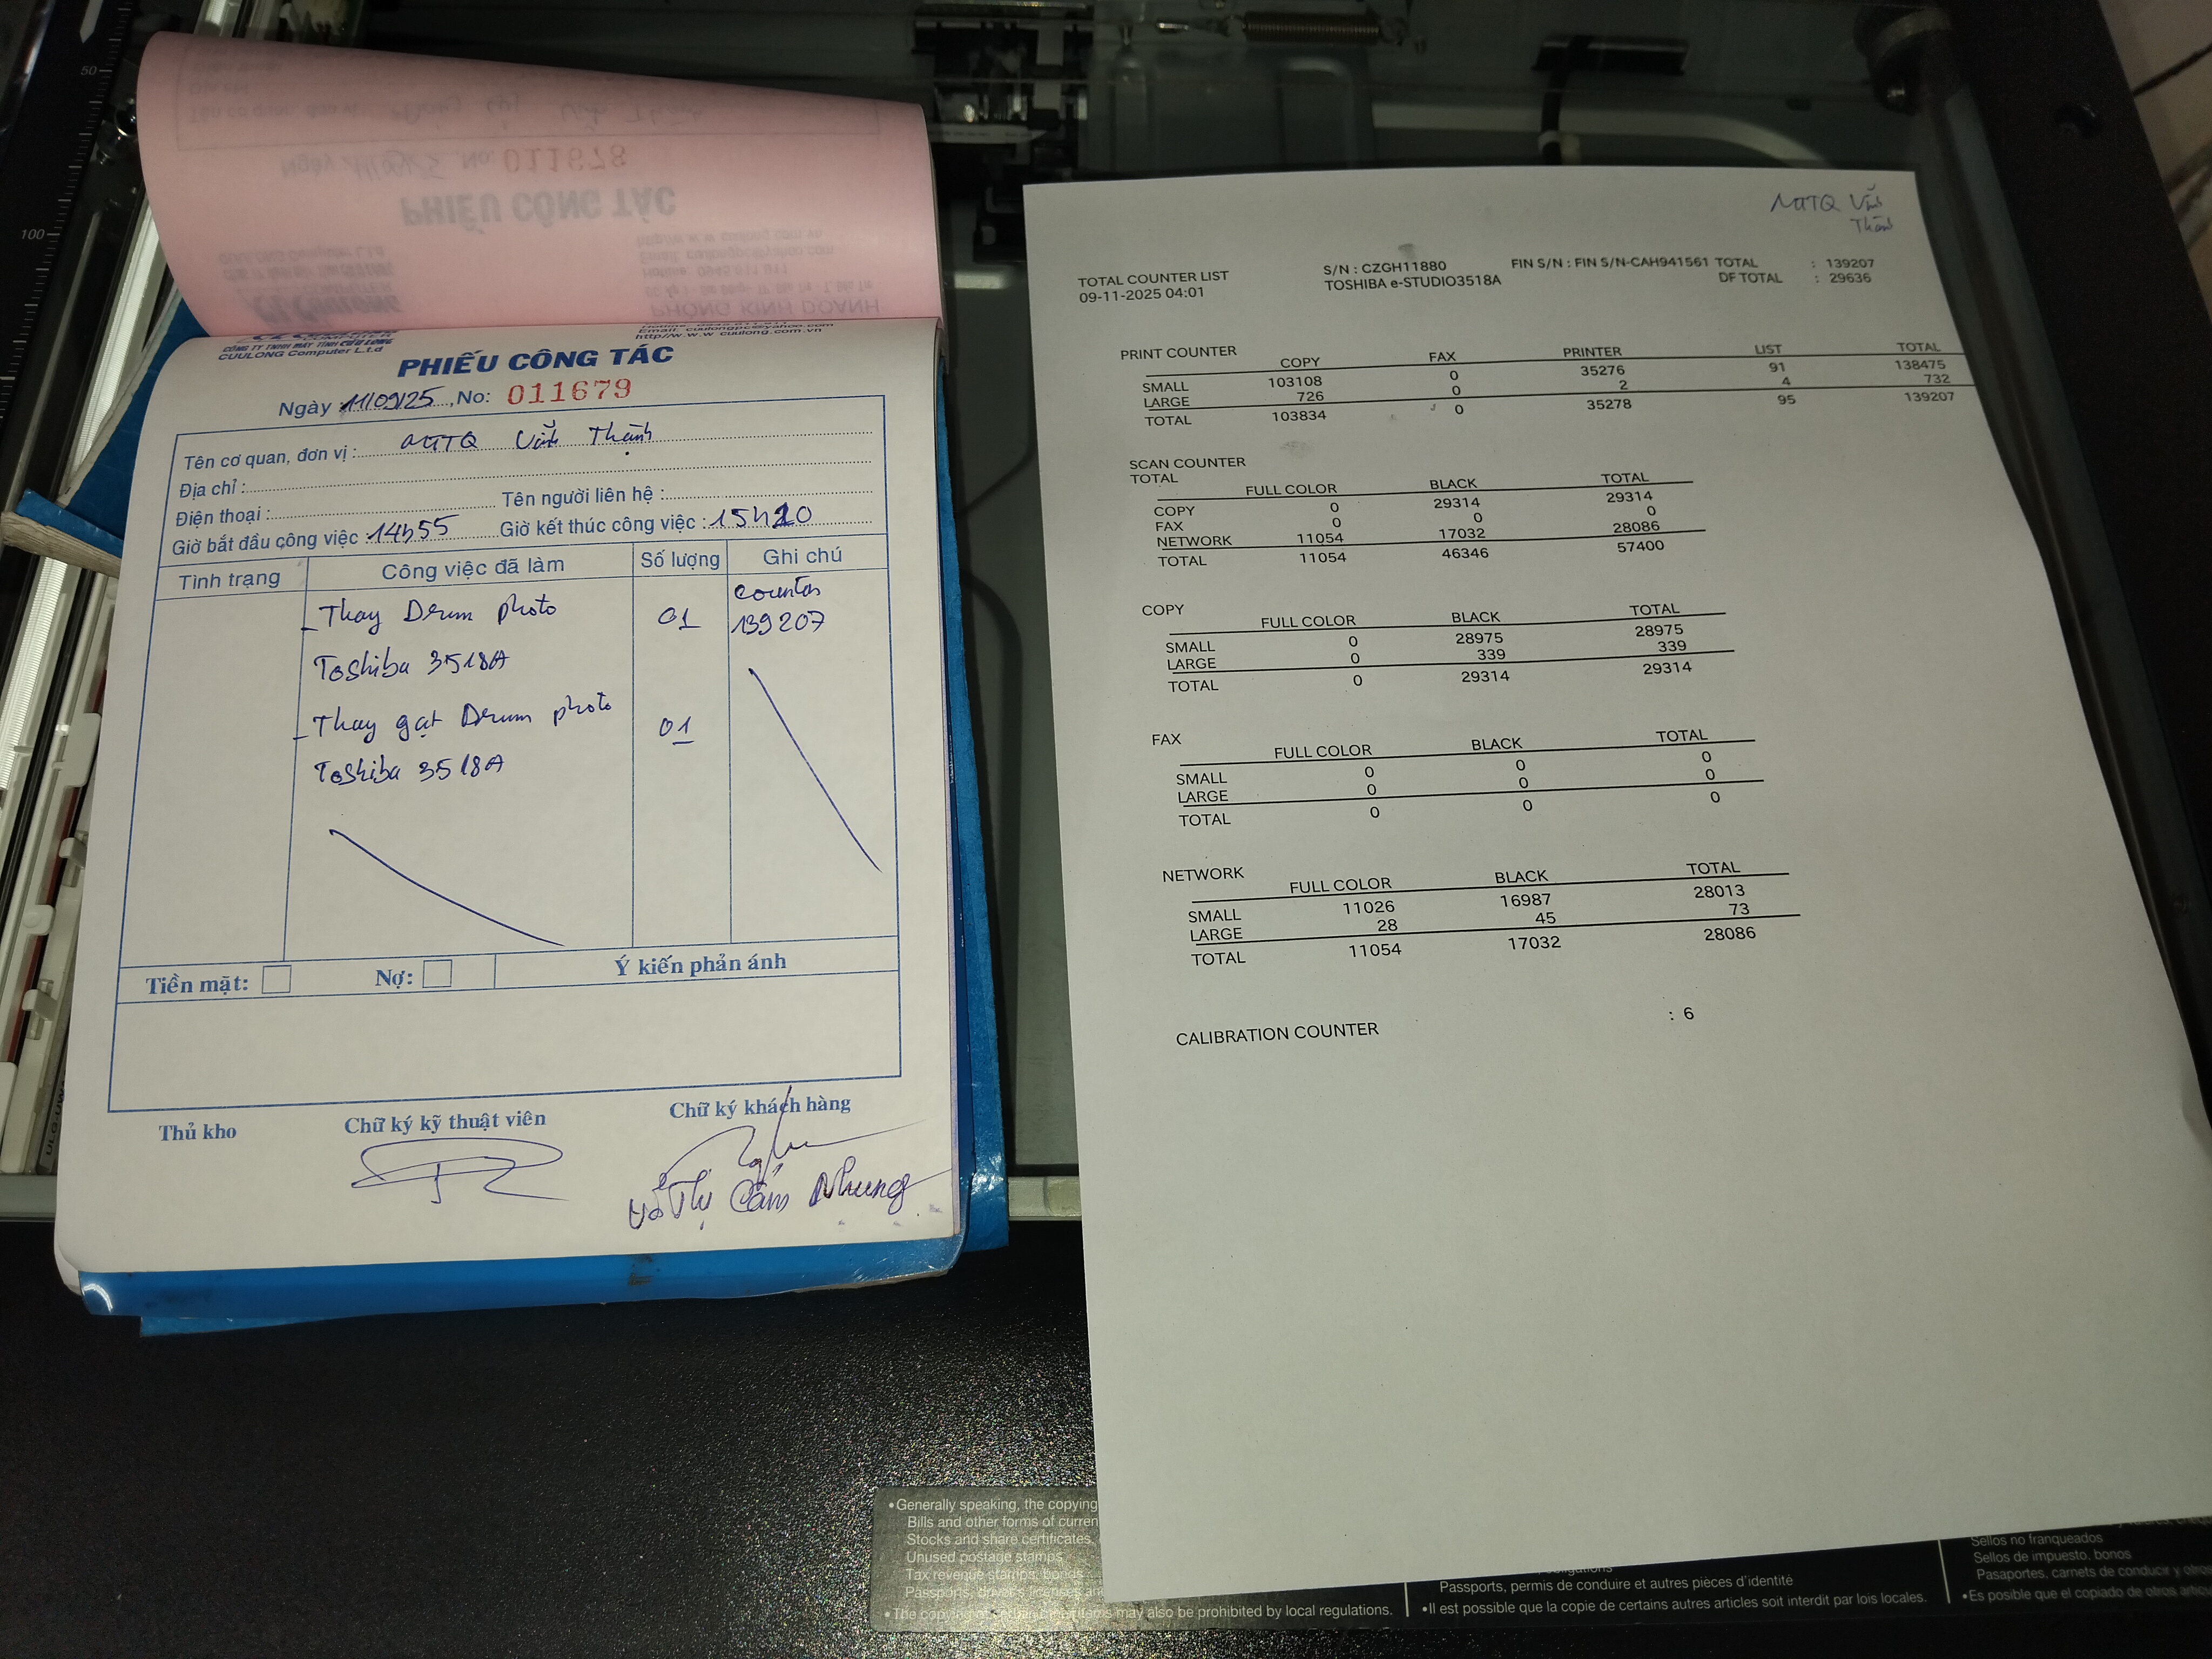 50
100
Ngày 11/09/25 No: 011678
PHIẾU CÔNG TÁC
PHÒNG KINH DOANH
CÔNG TY TNHH MÁY TÍNH CỬU LONG
CUULONG Computer L.t.d
Email: cuulongpc@yahoo.com
http//w.w.w cuulong.com.vn
PHIẾU CÔNG TÁC
Ngày 11/09/25, No: 011679
Tên cơ quan, đơn vị : MTTQ Vĩnh Thạnh
Địa chỉ :
Điện thoại : Tên người liên hệ :
Giờ bắt đầu công việc : 14h55 Giờ kết thúc công việc : 15h20
Tình trạng Công việc đã làm Số lượng Ghi chú
- Thay Drum photo 01 Counter
Toshiba 3518A 139207
- Thay gạt Drum photo 01
Toshiba 3518A
Tiền mặt: Nợ: Ý kiến phản ánh
Thủ kho Chữ ký kỹ thuật viên Chữ ký khách hàng
Võ Thị Cẩm Nhung
MTTQ Vĩnh
Thạnh
TOTAL COUNTER LIST S/N : CZGH11880 FIN S/N : FIN S/N-CAH941561 TOTAL : 139207
09-11-2025 04:01 TOSHIBA e-STUDIO3518A DF TOTAL : 29636
PRINT COUNTER
COPY FAX PRINTER LIST TOTAL
SMALL 103108 0 35276 91 138475
LARGE 726 0 2 4 732
TOTAL 103834 0 35278 95 139207
SCAN COUNTER
TOTAL
FULL COLOR BLACK TOTAL
COPY 0 29314 29314
FAX 0 0 0
NETWORK 11054 17032 28086
TOTAL 11054 46346 57400
COPY
FULL COLOR BLACK TOTAL
SMALL 0 28975 28975
LARGE 0 339 339
TOTAL 0 29314 29314
FAX
FULL COLOR BLACK TOTAL
SMALL 0 0 0
LARGE 0 0 0
TOTAL 0 0 0
NETWORK
FULL COLOR BLACK TOTAL
SMALL 11026 16987 28013
LARGE 28 45 73
TOTAL 11054 17032 28086
CALIBRATION COUNTER : 6
•Generally speaking, the copying
Bills and other forms of curren
Stocks and share certificates,
Unused postage stamps
Tax revenue stamps, bonds
Passports, driver's licenses an
•The copying of certain other items may also be prohibited by local regulations.
Passports, permis de conduire et autres pièces d'identité
•Il est possible que la copie de certains autres articles soit interdit par lois locales.
Sellos no franqueados
Sellos de impuesto, bonos
Pasaportes, carnets de conducir y otros
•Es posible que el copiado de otros artícu